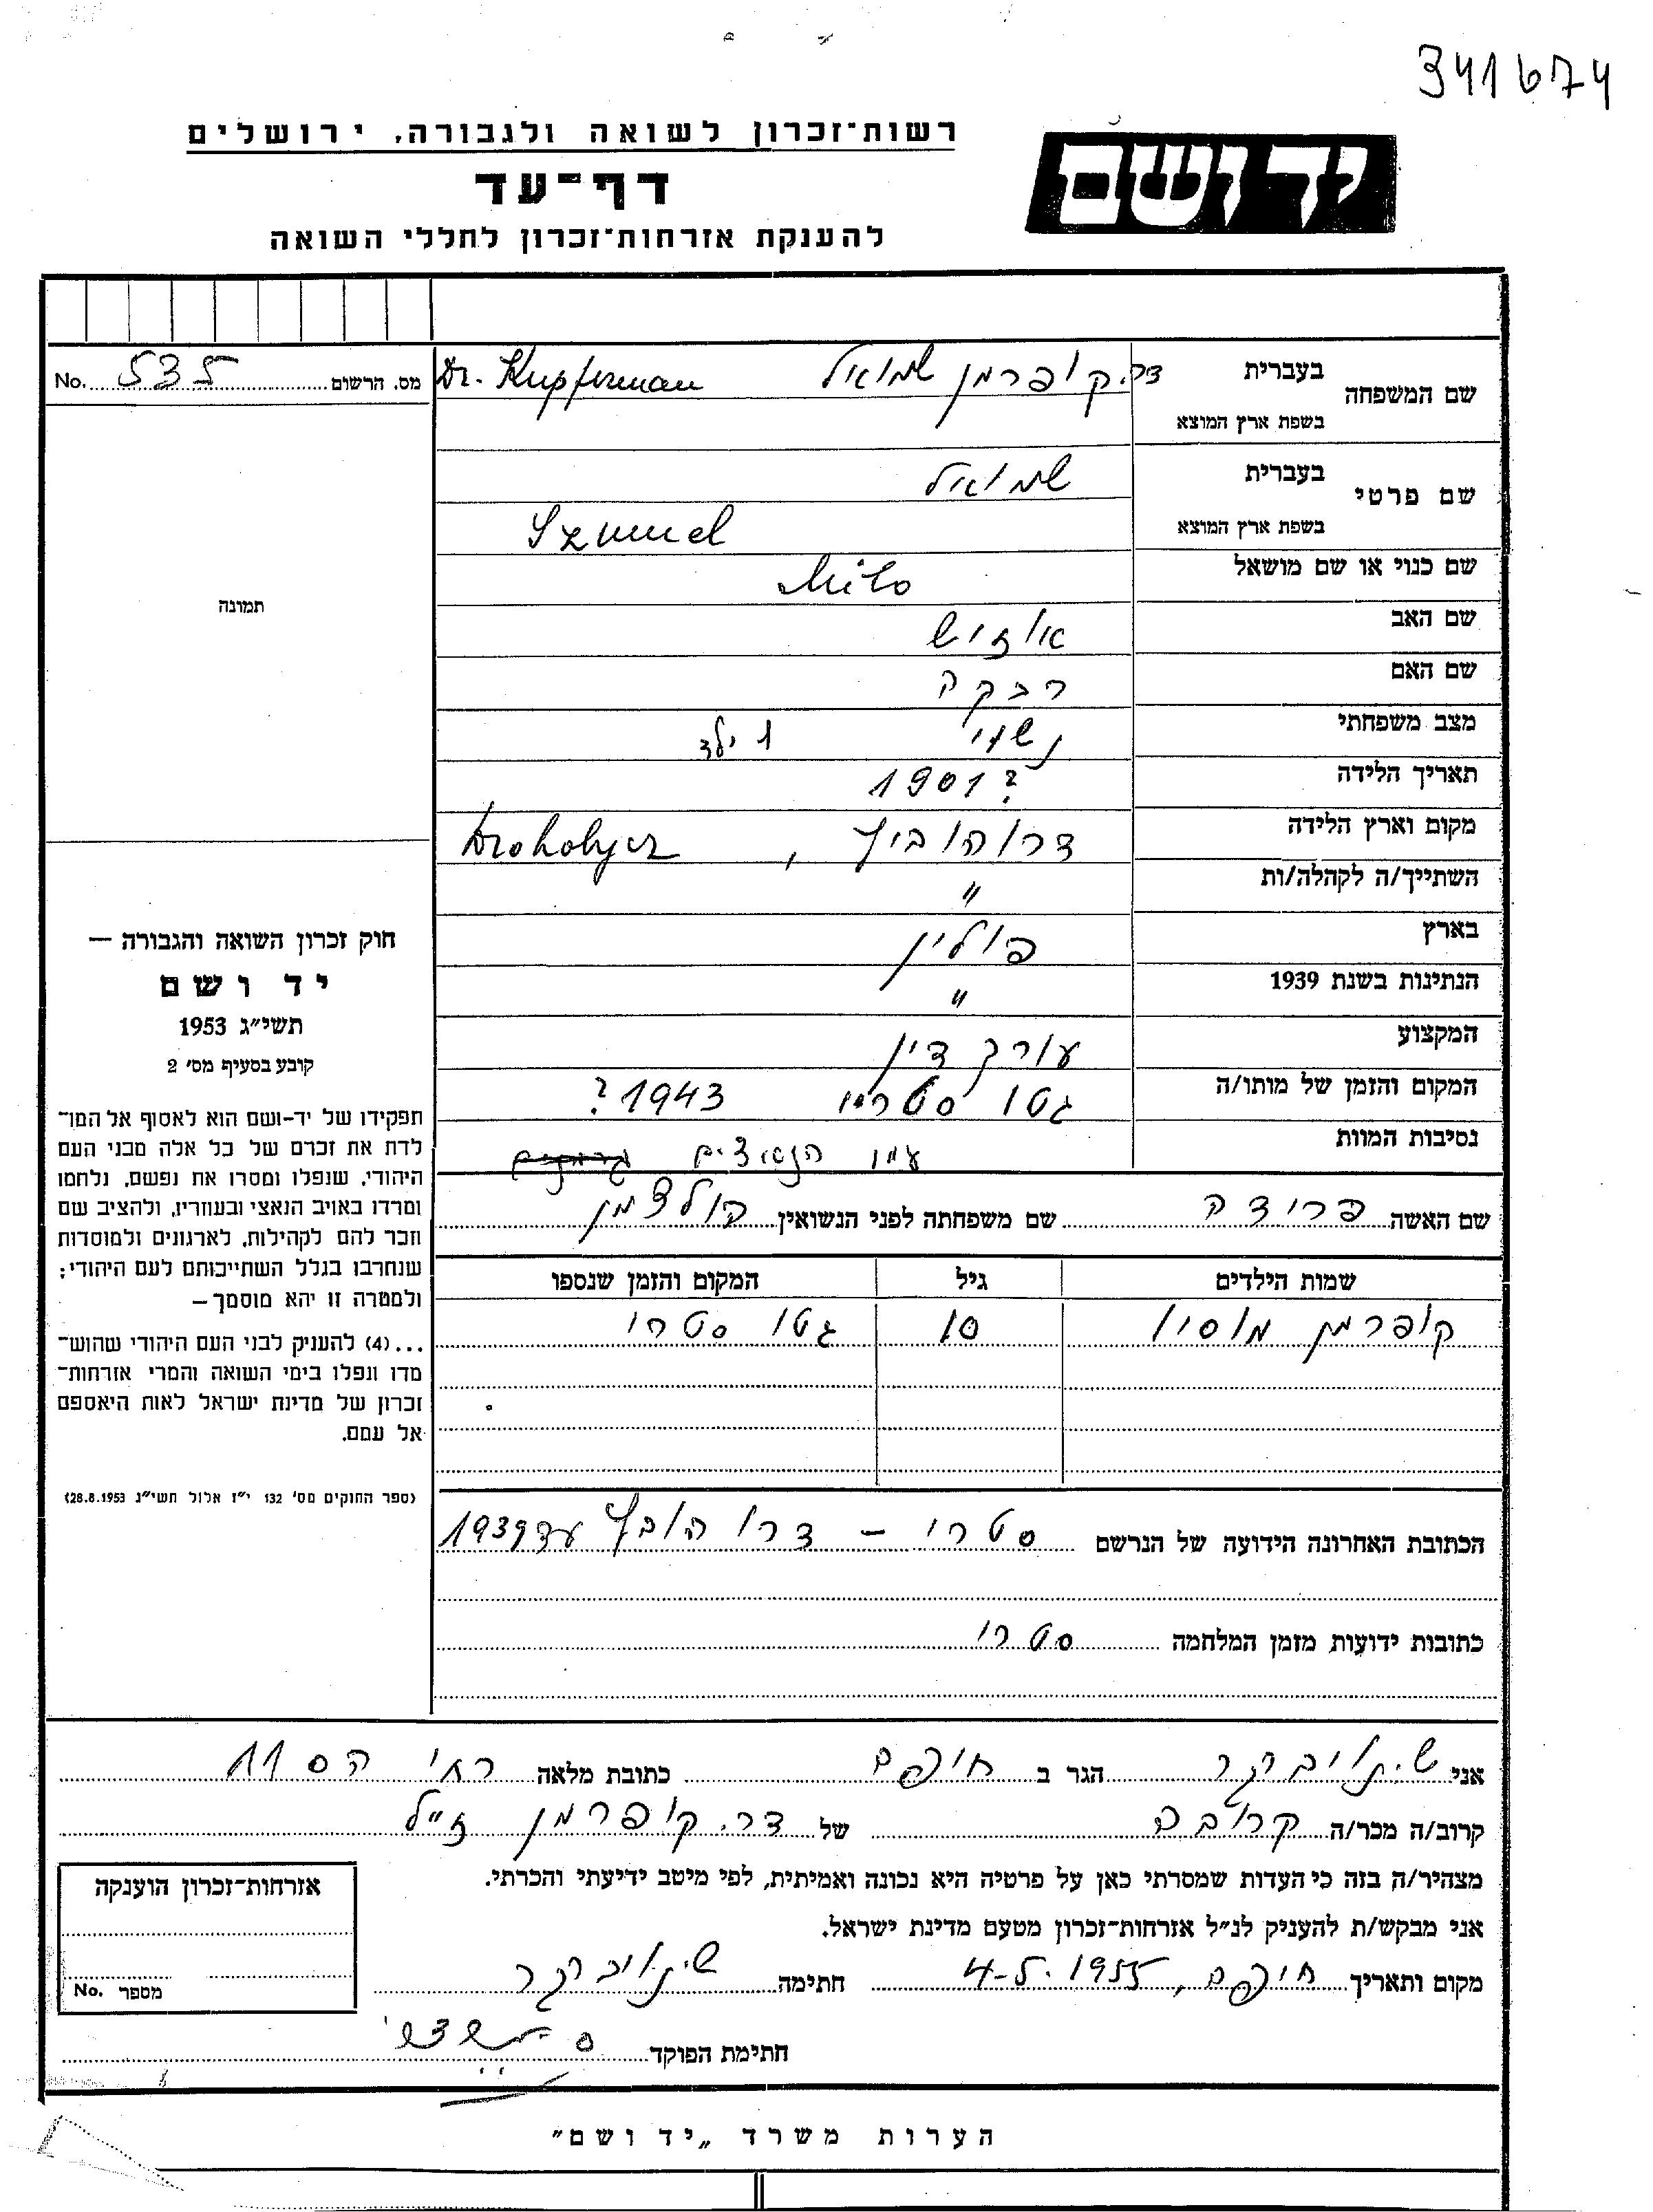 341674
רשות־זכרון לשואה ולגבורה, ירושלים
יד ושם
דף־עד
להענקת אזרחות־זכרון לחללי השואה
שם המשפחה בעברית דר. קופרמן שמואל Dr. Kupferman
בשפת ארץ המוצא
מס. הרשום 535 No.
שם פרטי בעברית שמואל
בשפת ארץ המוצא Szmuel
שם כנוי או שם מושאל Milo
תמונה
שם האב אוזיש
שם האם רבקה
מצב משפחתי נשוי 1 ילד
תאריך הלידה 1901 ?
מקום וארץ הלידה דרוהוביץ, Drohobycz
השתייך/ה לקהלה/ות "
בארץ פולין
הנתינות בשנת 1939 "
המקצוע עורך דין
המקום והזמן של מותו/ה גטו סטריי 1943 ?
נסיבות המוות ע"י הנאצים
שם האשה פרידה שם משפחתה לפני הנשואין הולצמן
שמות הילדים גיל המקום והזמן שנספו
קופרמן מוסיו 10 גטו סטרי
הכתובת האחרונה הידועה של הנרשם סטרי – דרוהוביץ עד 1939
כתובות ידועות מזמן המלחמה סטרי
חוק זכרון השואה והגבורה —
יד ושם
תשי״ג 1953
קובע בסעיף מס׳ 2
תפקידו של יד-ושם הוא לאסוף אל המו־
לדת את זכרם של כל אלה מבני העם
היהודי, שנפלו ומסרו את נפשם, נלחמו
ומרדו באויב הנאצי ובעוזריו, ולהציב שם
וזכר להם לקהילות, לארגונים ולמוסדות
שנחרבו בגלל השתייכותם לעם היהודי;
ולמטרה זו יהא מוסמך—
...(4) להעניק לבני העם היהודי שהוש־
מדו ונפלו בימי השואה והמרי אזרחות־
זכרון של מדינת ישראל לאות היאספם
אל עמם.
(ספר החוקים מס׳ 132 י״ז אלול תשי״ג 28.8.1953)
אני הגר ב חיפה כתובת מלאה הס 11
קרוב/ה מכר/ה קרובה של דר. קופרמן ז"ל
מצהיר/ה בזה כי העדות שמסרתי כאן על פרטיה היא נכונה ואמיתית, לפי מיטב ידיעתי והכרתי.
אני מבקש/ת להעניק לנ״ל אזרחות־זכרון מטעם מדינת ישראל.
מקום ותאריך חיפה, 4-5.1955 חתימה
חתימת הפוקד
אזרחות־זכרון הוענקה
מספר No.
הערות משרד „יד ושם"